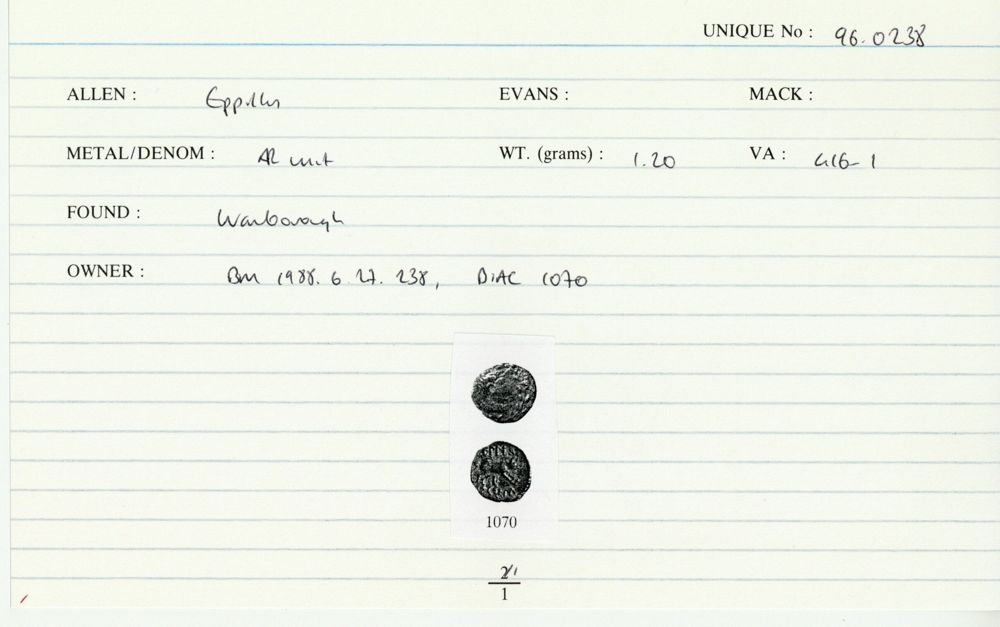 UNIQUE No : 96.0238
ALLEN : Eppillus EVANS : MACK :
METAL/DENOM : AR unit WT. (grams) : 1.20 VA : 416-1
FOUND : Warborough
OWNER : BM 1988. 6. 27. 238, BIAC 1070
1070
1